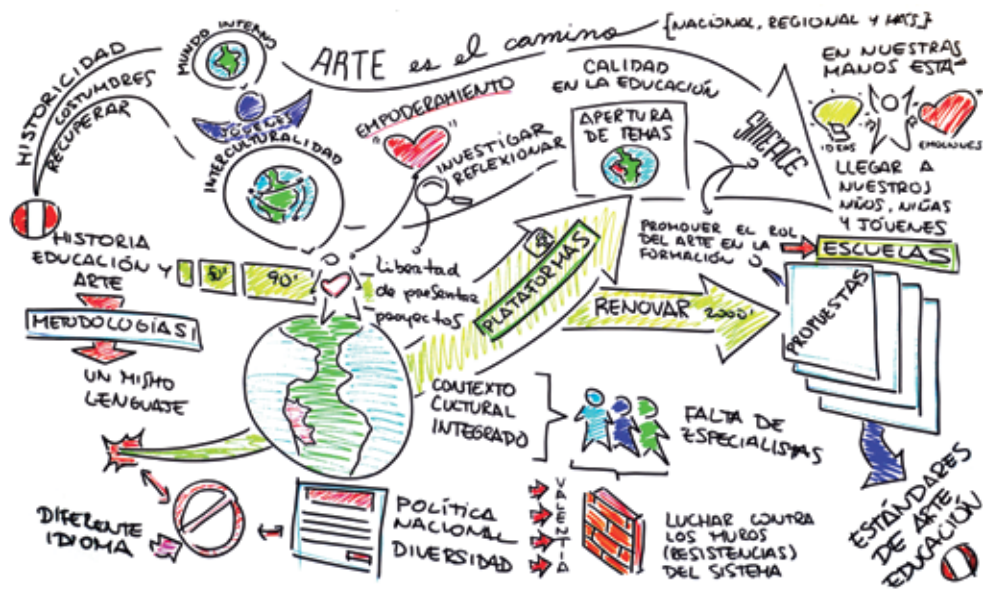 HISTORICIDAD
COSTUMBRES
RECUPERAR
MUNDO INTERNO
JÓVENES
INTERCULTURALIDAD
ARTE es el camino
{NACIONAL, REGIONAL Y MÁS}
EMPODERAMIENTO
INVESTIGAR
REFLEXIONAR
CALIDAD
EN LA EDUCACIÓN
APERTURA
DE TEMAS
SINEACE
EN NUESTRAS
MANOS ESTÁ
IDEAS
EMOCIONES
LLEGAR A
NUESTROS
NIÑOS, NIÑAS
Y JÓVENES
ESCUELAS
HISTORIA
EDUCACIÓN Y
ARTE
METODOLOGÍAS
UN MISMO
LENGUAJE
90'
libertad
de presentar
proyectos
PLATAFORMAS
PROMOVER EL ROL
DEL ARTE EN LA
FORMACIÓN
RENOVAR 2000'
PROPUESTAS
CONTEXTO
CULTURAL
INTEGRADO
FALTA DE
ESPECIALISTAS
DIFERENTE
IDIOMA
POLÍTICA
NACIONAL
DIVERSIDAD
VALENTÍA
LUCHAR CONTRA
LOS MUROS
(RESISTENCIAS)
DEL SISTEMA
ESTÁNDARES
DE ARTE
EDUCACIÓN